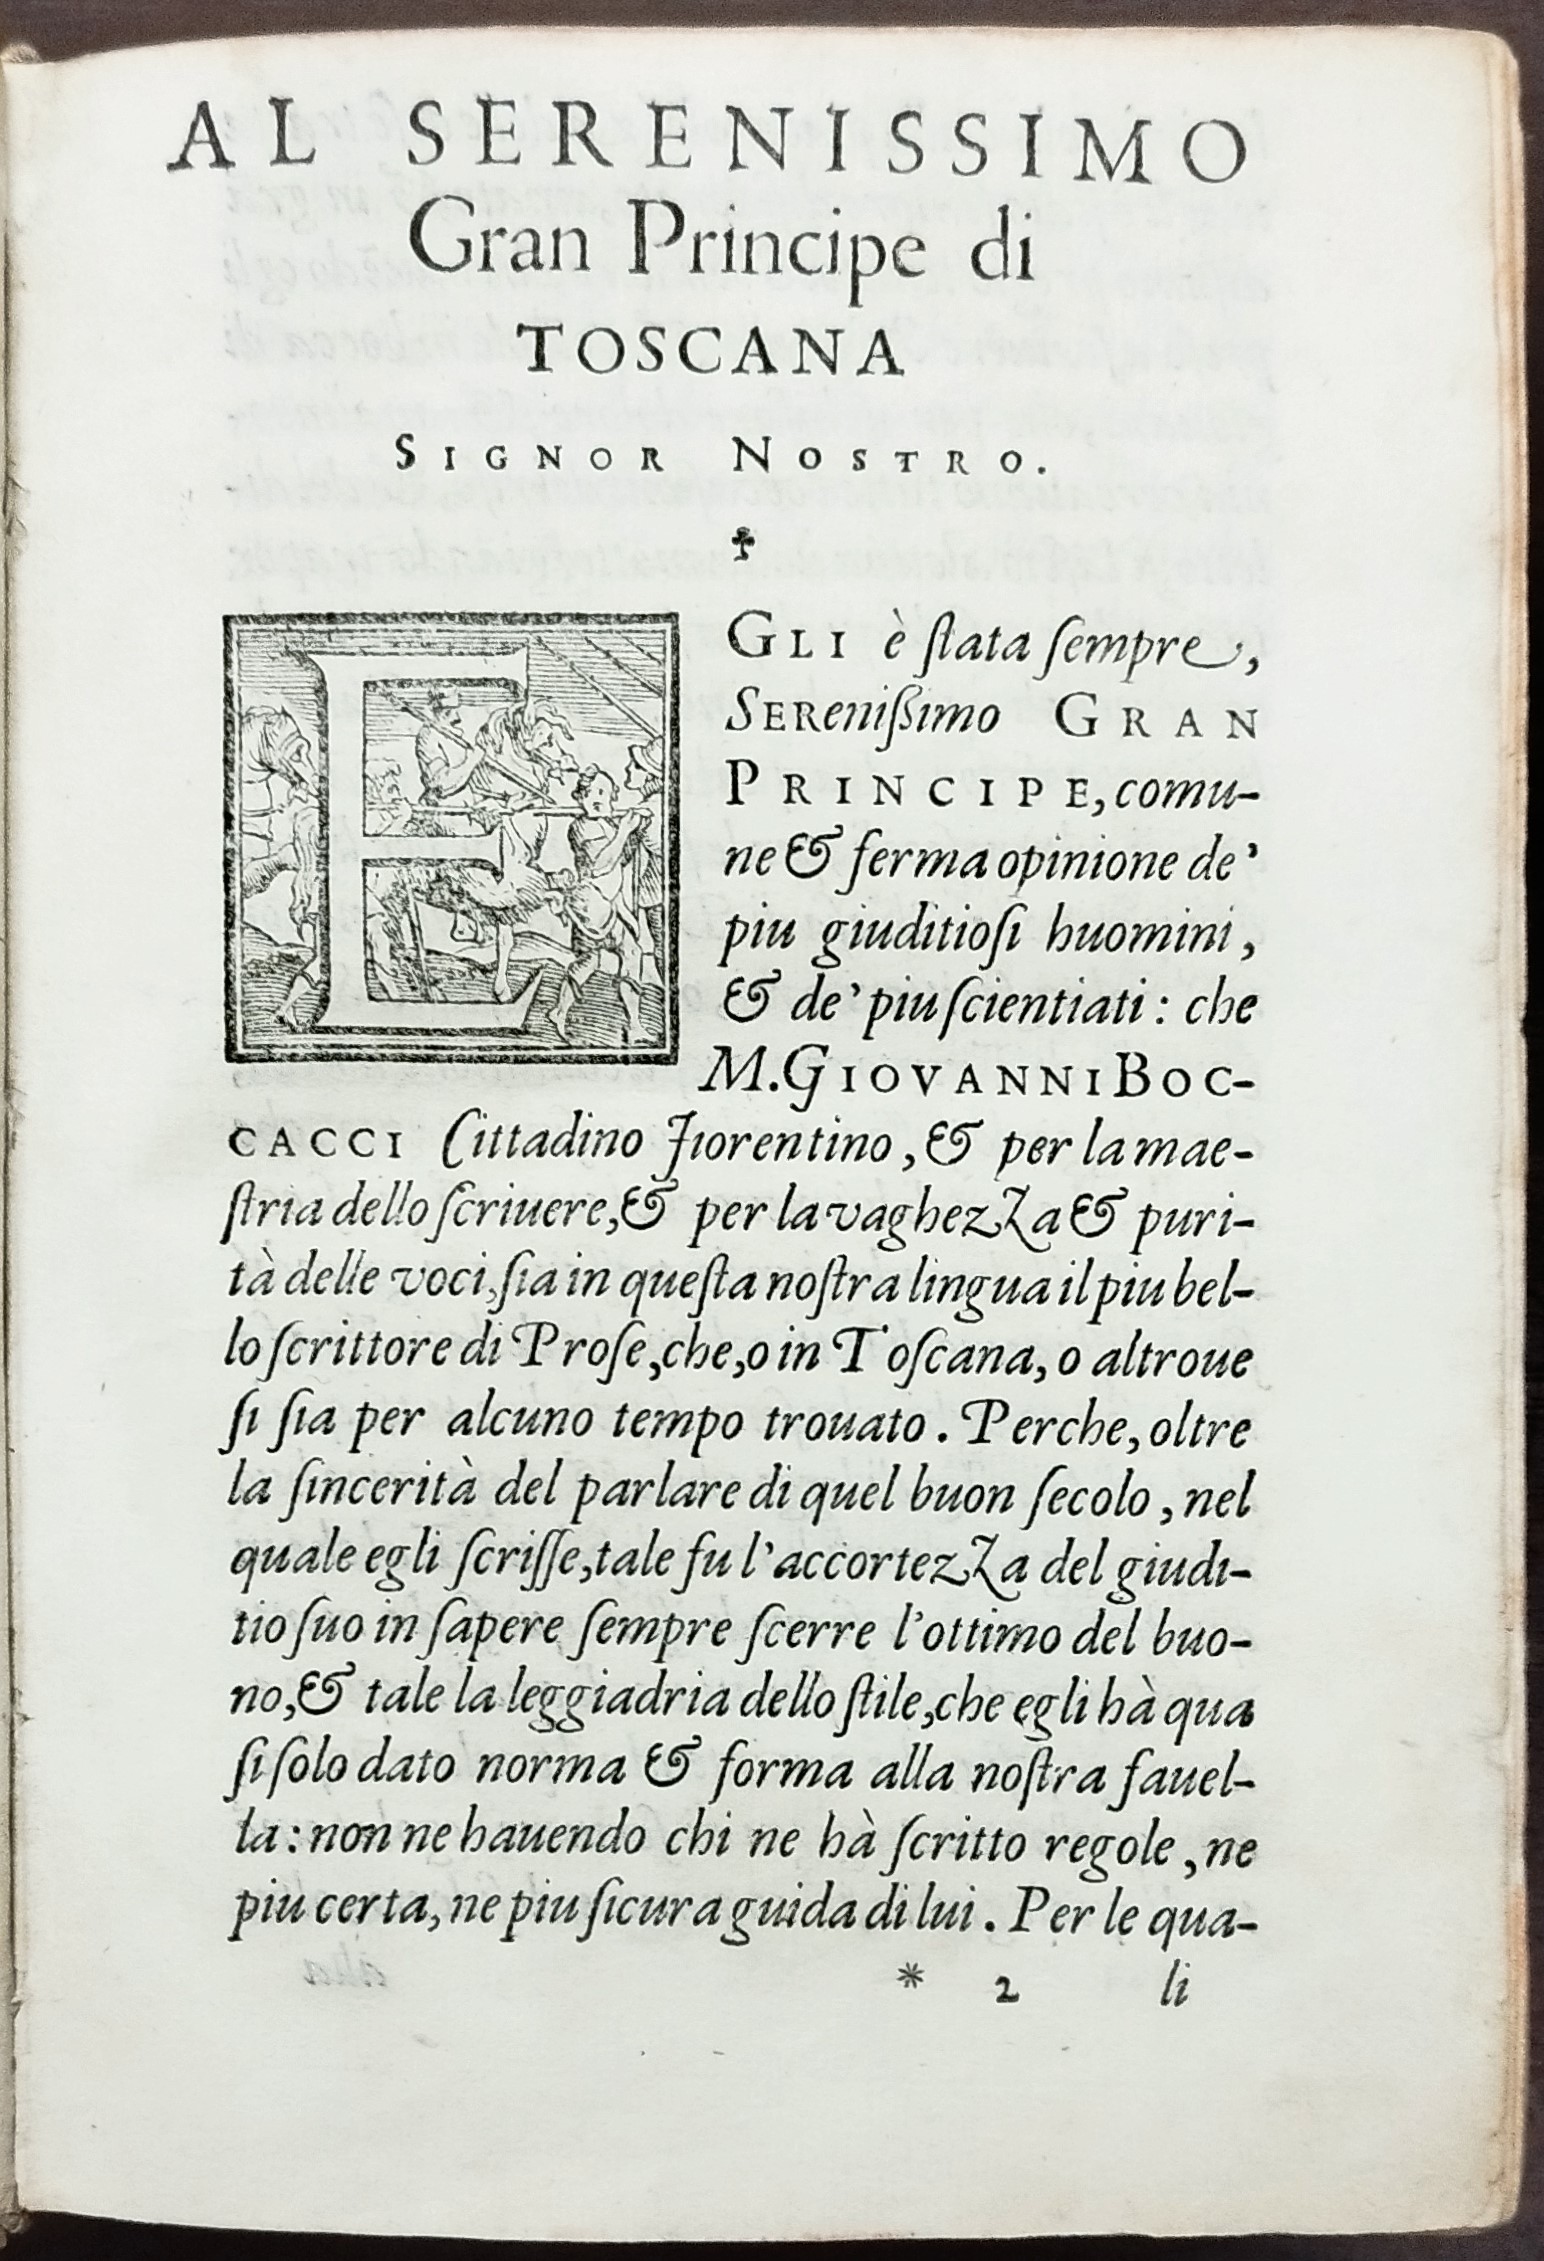 AL SERENISSIMO
Gran Principe di
TOSCANA
SIGNOR NOSTRO.
EGLI è ſtata ſempre,
SEReniſſimo GRAN
PRINCIPE, comu-
ne & ferma opinione de'
piu giuditioſi huomini,
& de' piu ſcientiati: che
M. GIOVANNI BOC-
CACCI Cittadino Fiorentino, & per la mae-
ſtria dello ſcriuere, & per la vaghezza & puri-
tà delle voci, ſia in queſta noſtra lingua il piu bel-
lo ſcrittore di Proſe, che, o in Toſcana, o altroue
ſi ſia per alcuno tempo trouato. Perche, oltre
la ſincerità del parlare di quel buon ſecolo, nel
quale egli ſcriſſe, tale fu l'accortezza del giudi-
tio ſuo in ſapere ſempre ſcerre l'ottimo del buo-
no, & tale la leggiadria dello ſtile, che egli hà qua
ſi ſolo dato norma & forma alla noſtra fauel-
la: non ne hauendo chi ne hà ſcritto regole, ne
piu certa, ne piu ſicura guida di lui. Per le qua-
* 2 li